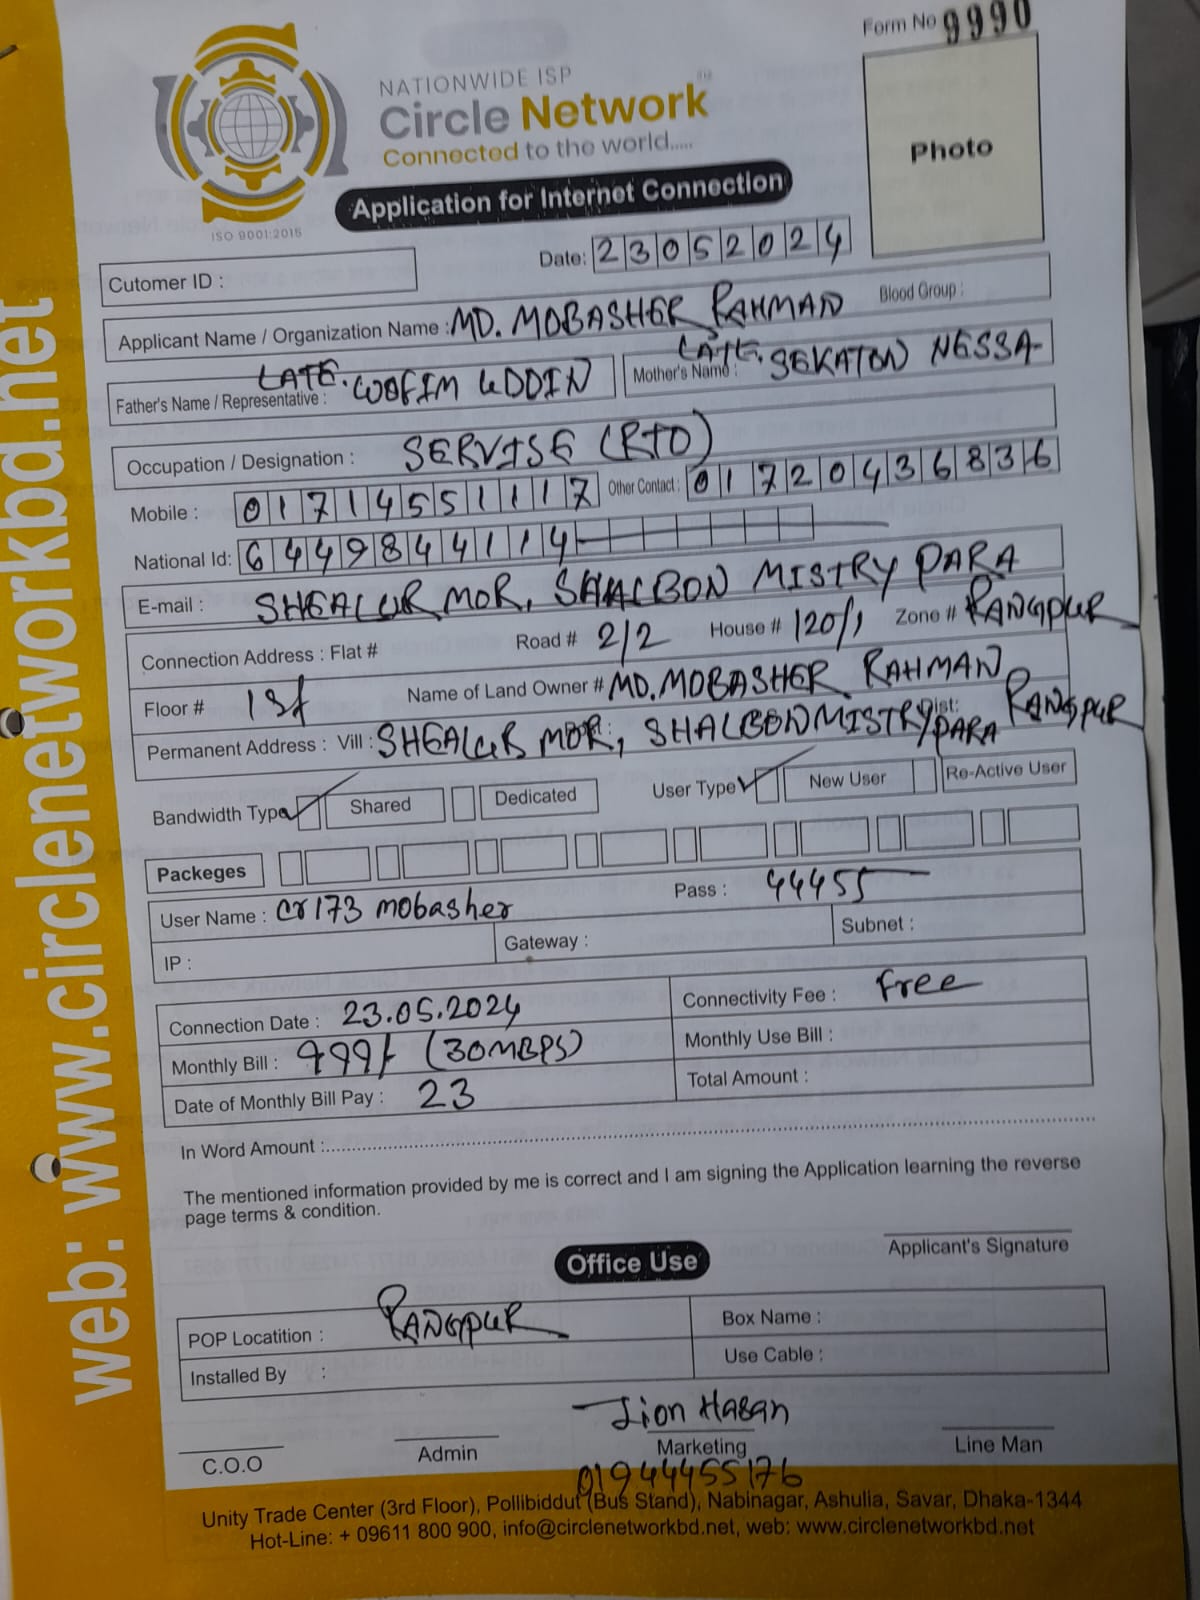 Form No 9990
NATIONWIDE ISP
Circle Network
Connected to the world.....
ISO 9001:2015
Photo
Application for Internet Connection
Date: 23052024
Cutomer ID :
Applicant Name / Organization Name : MD. MOBASHER RAHMAN Blood Group :
Father's Name / Representative : LATE. WOFIM UDDIN Mother's Name : LATE. SEKATON NESSA
Occupation / Designation : SERVISE (RTO)
Mobile : 01714551117 Other Contact : 01720436836
National Id: 6449844114
E-mail : SHEALUR MOR, SHALBON MISTRY PARA
Connection Address : Flat # Road # 2/2 House # 120/1 Zone # RANGPUR
Floor # 1st Name of Land Owner # MD. MOBASHER RAHMAN
Permanent Address : Vill : SHEALUR MOR, SHALBON MISTRY PARA Dist: RANGPUR
Bandwidth Type Shared Dedicated User Type New User Re-Active User
Packeges
User Name : cr173 mobasher Pass : 44455
IP : Gateway : Subnet :
Connection Date : 23.05.2024 Connectivity Fee : Free
Monthly Bill : 999/- (30MBPS) Monthly Use Bill :
Date of Monthly Bill Pay : 23 Total Amount :
In Word Amount :
The mentioned information provided by me is correct and I am signing the Application learning the reverse
page terms & condition.
Applicant's Signature
Office Use
POP Locatition : RANGPUR Box Name :
Installed By : Use Cable :
C.O.O Admin Hasan Marketing Line Man
01944455176
Unity Trade Center (3rd Floor), Pollibiddut (Bus Stand), Nabinagar, Ashulia, Savar, Dhaka-1344
Hot-Line: + 09611 800 900, info@circlenetworkbd.net, web: www.circlenetworkbd.net
web: www.circlenetworkbd.net